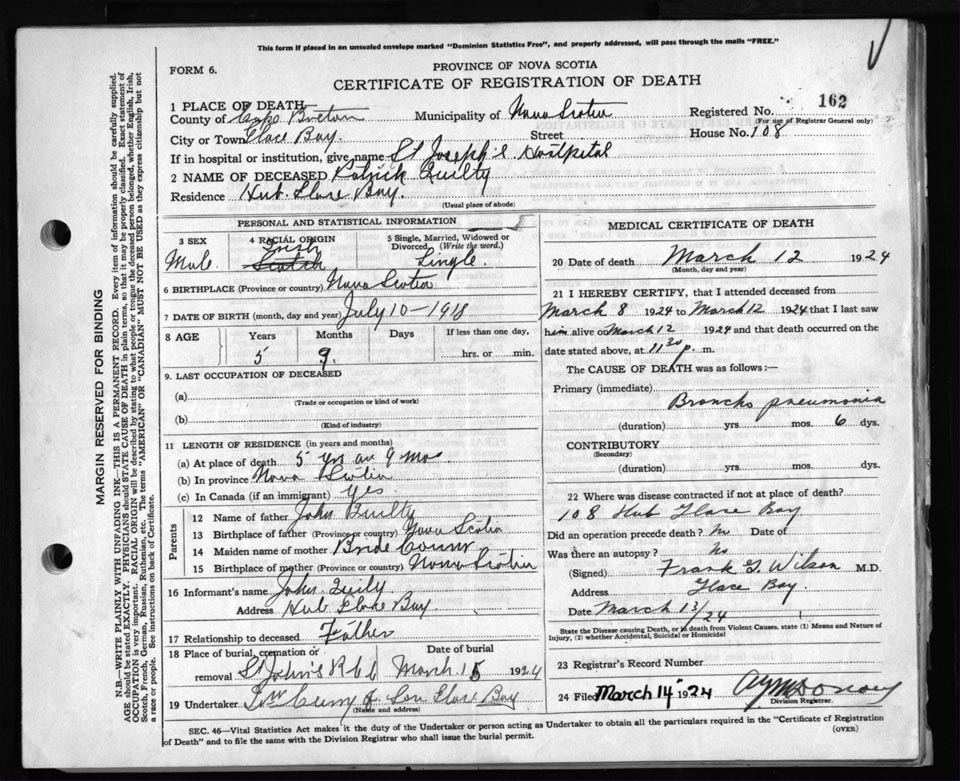 This form if placed in an unsealed envelope marked "Dominion Statistics Free", and properly addressed, will pass through the mails "FREE."
FORM 6.
PROVINCE OF NOVA SCOTIA
CERTIFICATE OF REGISTRATION OF DEATH
1 PLACE OF DEATH
County of Cape Breton Municipality of Nova Scotia Registered No. 162
(For use of Registrar General only)
City or Town Glace Bay. Street House No. 108
If in hospital or institution, give name St Joseph's Hospital
2 NAME OF DECEASED Patrick Quilty
Residence Hub. Glace Bay.
(Usual place of abode)
PERSONAL AND STATISTICAL INFORMATION
3 SEX 4 RACIAL ORIGIN 5 Single, Married, Widowed or Divorced. (Write the word.)
Male. Irish Scotch Single.
6 BIRTHPLACE (Province or country) Nova Scotia
7 DATE OF BIRTH (month, day and year) July 10 - 1918
8 AGE Years Months Days If less than one day,
5 9. hrs. or min.
9. LAST OCCUPATION OF DECEASED
(a)
(Trade or occupation or kind of work)
(b)
(Kind of industry)
11 LENGTH OF RESIDENCE (in years and months)
(a) At place of death 5 yrs an 9 mos
(b) In province Nova Scotia
(c) In Canada (if an immigrant) yes.
Parents
12 Name of father John Quilty
13 Birthplace of father (Province or country) Nova Scotia
14 Maiden name of mother Bride
15 Birthplace of mother (Province or country) Nova Scotia
16 Informant's name John Quilty
Address Hub Glace Bay.
17 Relationship to deceased Father
18 Place of burial, cremation or removal Date of burial
St John's March 15 1924
19 Undertaker & Son Glace Bay
(Name and address)
MEDICAL CERTIFICATE OF DEATH
20 Date of death March 12 1924
(Month, day and year)
21 I HEREBY CERTIFY, that I attended deceased from
March 8 1924 to March 12 1924 that I last saw
him alive on March 12 1924 and that death occurred on the
date stated above, at 11 30 p. m.
The CAUSE OF DEATH was as follows:—
Primary (immediate)
Broncho pneumonia
(duration) yrs. mos. 6 dys.
CONTRIBUTORY
(Secondary)
(duration) yrs. mos. dys.
22 Where was disease contracted if not at place of death?
108 Hub Glace Bay
Did an operation precede death? No Date of
Was there an autopsy? No
(Signed) Frank G. Wilson M.D.
Address Glace Bay.
Date March 13/24
State the Disease causing Death, or in death from Violent Causes, state (1) Means and Nature of
Injury, (2) whether Accidental, Suicidal or Homicidal
23 Registrar's Record Number
24 Filed March 14 1924
Division Registrar.
SEC. 46—Vital Statistics Act makes it the duty of the Undertaker or person acting as Undertaker to obtain all the particulars required in the "Certificate of Registration
of Death" and to file the same with the Division Registrar who shall issue the burial permit.
(OVER)
MARGIN RESERVED FOR BINDING
N.B.—WRITE PLAINLY, WITH UNFADING INK—THIS IS A PERMANENT RECORD. Every item of information should be carefully supplied.
AGE should be stated EXACTLY. PHYSICIANS should STATE CAUSE OF DEATH in plain terms, so that it may be properly classified. Exact statement of
OCCUPATION is very important. RACIAL ORIGIN will be described by stating to what people or tongue the deceased person belonged, whether English, Irish,
Scotch, French, German, Russian, Ruthenian, etc. The terms "AMERICAN" OR "CANADIAN" MUST NOT BE USED as they express citizenship but not
a race or people. See instructions on back of Certificate.